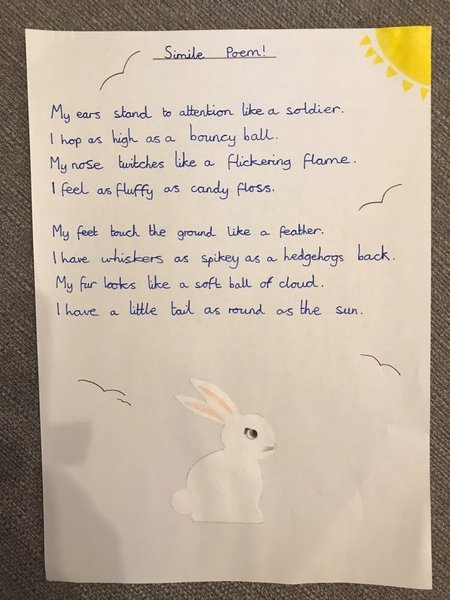 Simile Poem!
My ears stand to attention like a soldier.
I hop as high as a bouncy ball.
My nose twitches like a flickering flame.
I feel as fluffy as candy floss.
My feet touch the ground like a feather.
I have whiskers as spikey as a hedgehogs back.
My fur looks like a soft ball of cloud.
I have a little tail as round as the sun.